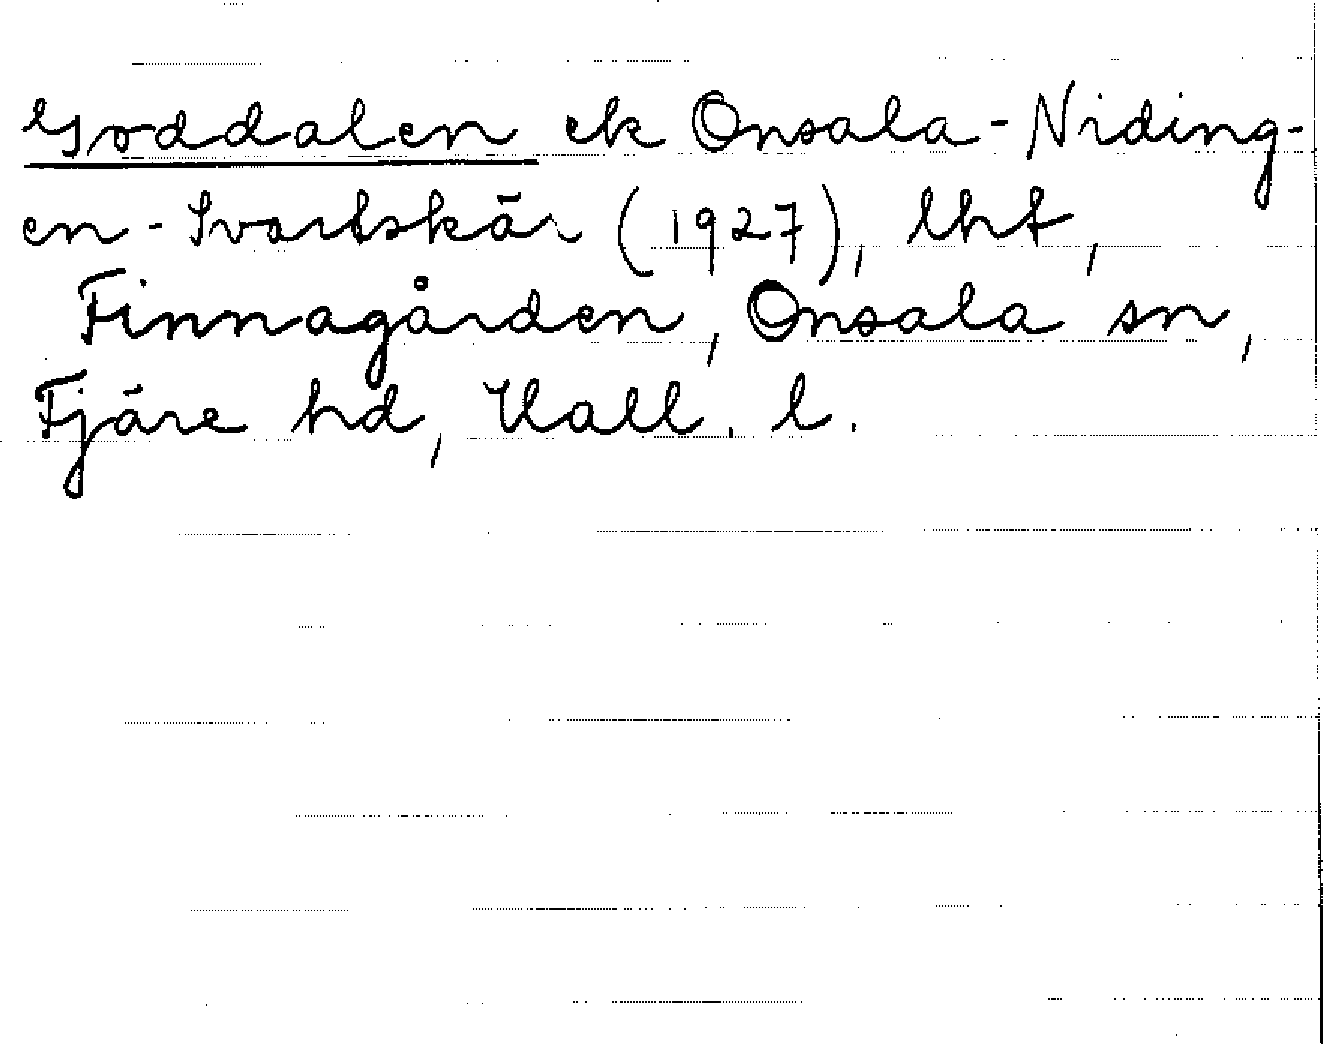 Goddalen ek Onsala-Niding-
en-Svartskär (1927), lht,
Finnagården, Onsala sn,
Fjäre hd, Hall. l.